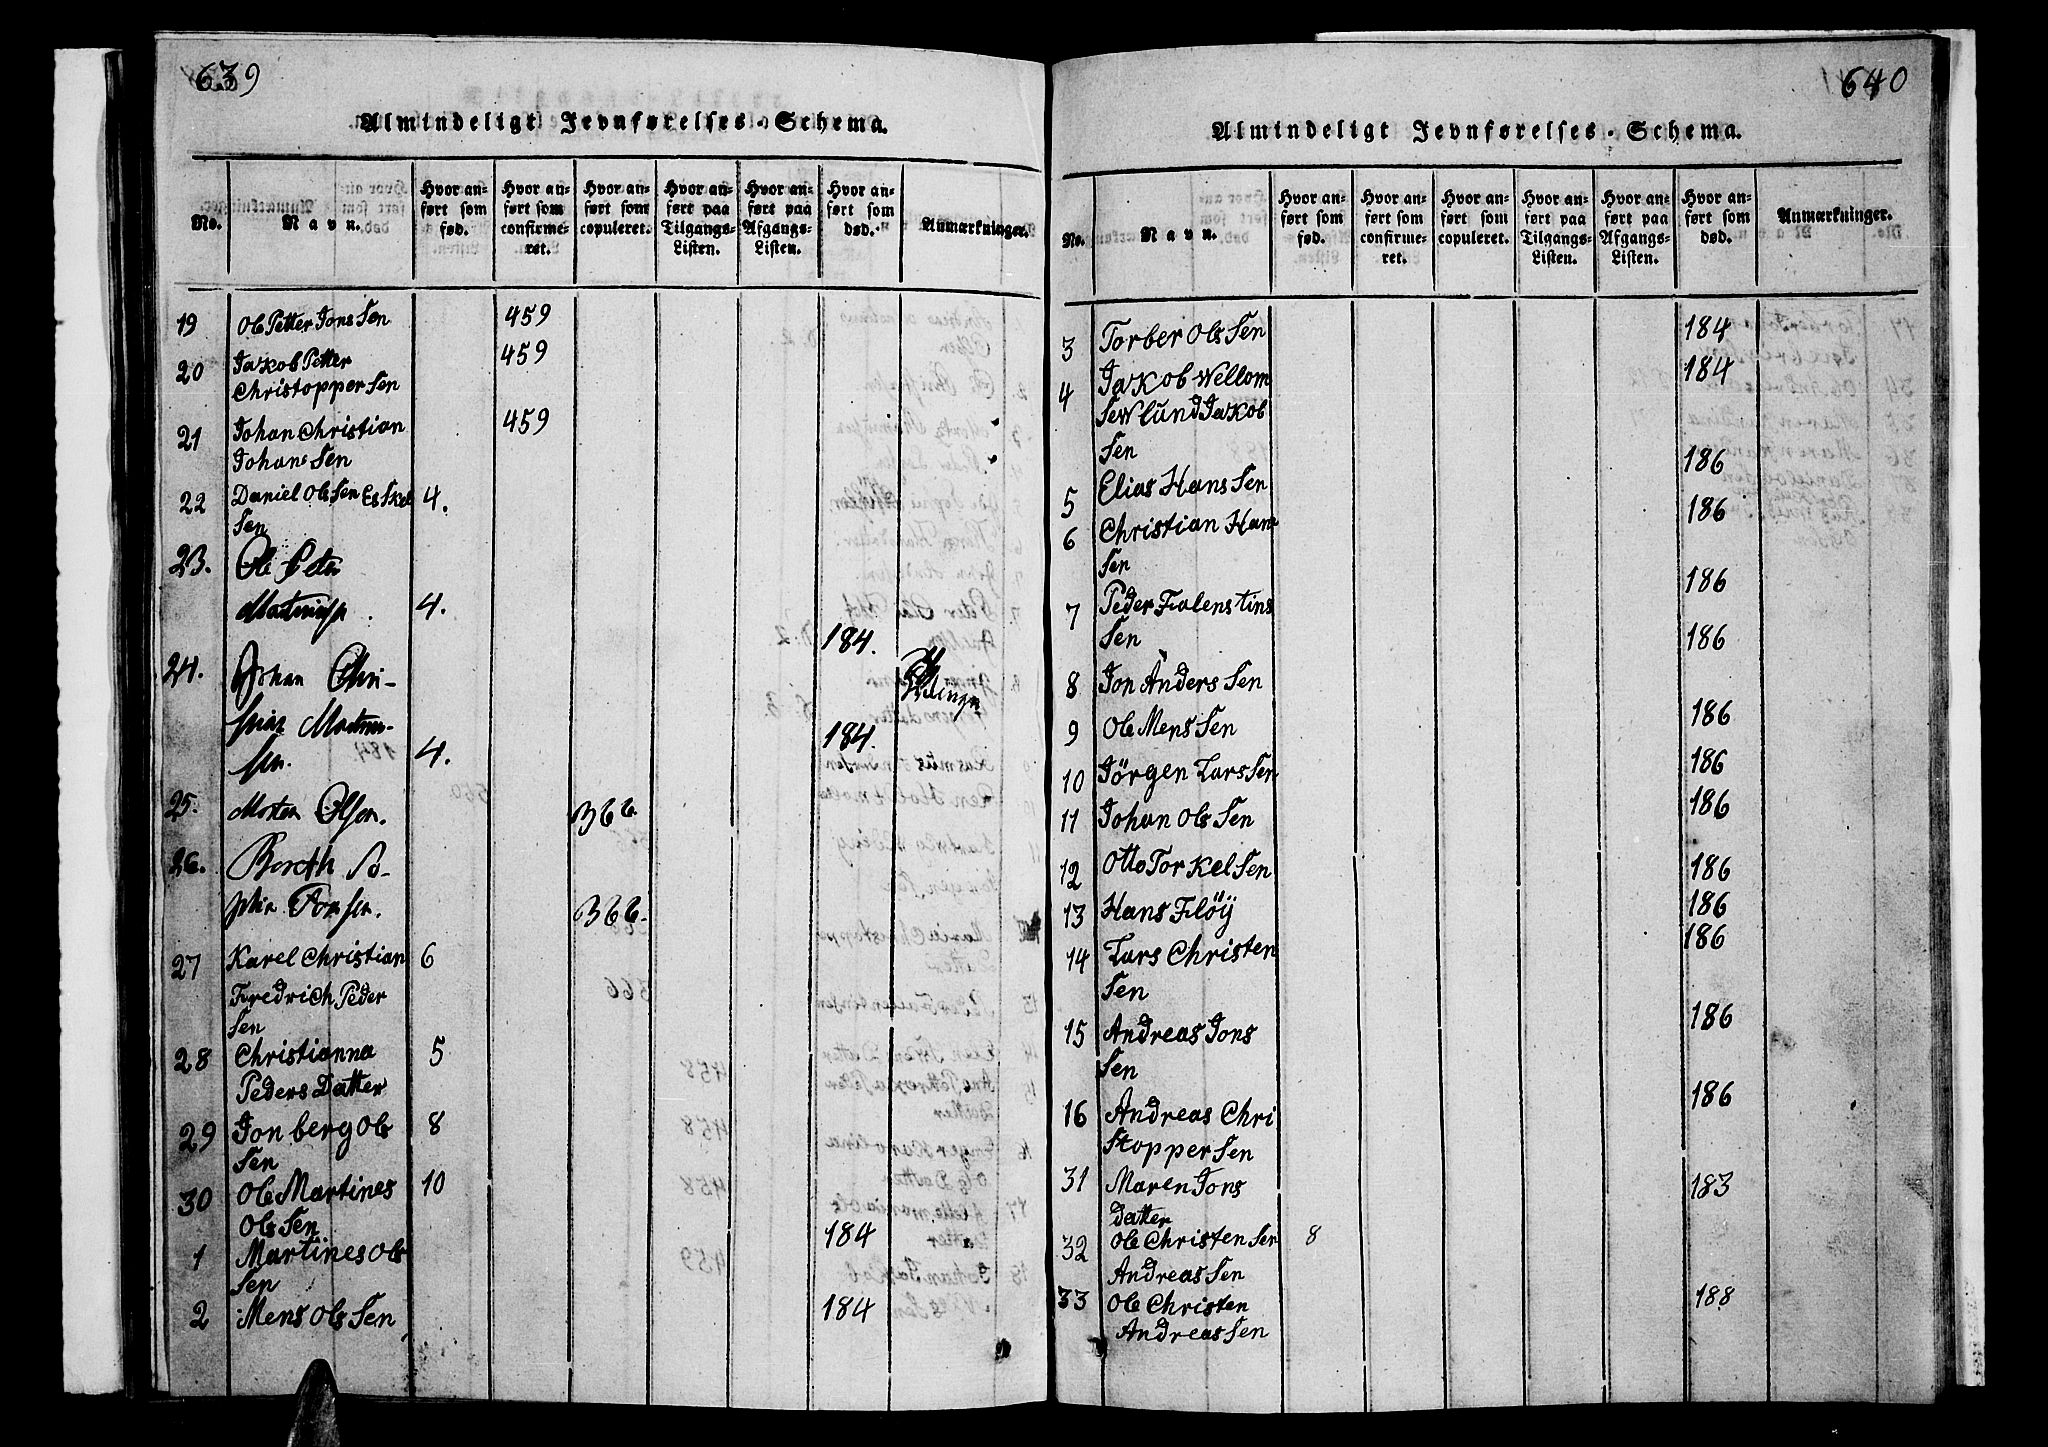 639
Almindeligt Jevnførelses-Schema.
No. Navn. Hvor anført som fød. Hvor anført som confirmeret. Hvor anført som copuleret. Hvor anført paa Tilgangs-Listen. Hvor anført paa Afgangs-Listen. Hvor anført som død. Anmærkninger.
19 Ole Petter Jons Sen 459
20 Jakob Petter 459
Christopper Sen
21 Johan Christian 459
Johans Sen
22 Daniel Ols Sen Eskel 4.
Sen
23. Ole Peter
4.
184.
24. Johan Chri-
184.
4.
25. Morten Olsen. 366
26. Bereth So-
phia 366.
27 Karel Christian 6
Fredrich Peder
Sen
28 Christianna 5
Peders Datter
29 Jon berg Ols 8
Sen
30 Ole Martines 10
Ols Sen
1 Martines Ols 184
Sen
2 Mens Ols Sen 184
640
Almindeligt Jevnførelses-Schema.
No. Navn. Hvor anført som fød. Hvor anført som confirmeret. Hvor anført som copuleret. Hvor anført paa Tilgangs-Listen. Hvor anført paa Afgangs-Listen. Hvor anført som død. Anmærkninger.
3 Torber Ols Sen 184
4 Jakob Wellom 184
Sewlund Jakob
Sen
5 Elias Hans Sen 186
6 Christian Hans 186
Sen
7 Peder Falenstins 186
Sen
8 Jon Anders Sen 186
9 Ole Mens Sen 186
10 Jörgen Lars Sen 186
11 Johan Ols Sen 186
12 Otto Torkel Sen 186
13 Hans Fløÿ 186
14 Lars Christen 186
Sen
15 Andreas Jons 186
Sen
16 Andreas Chri 186
Stopper Sen
31 Maren Jons 183
Datter
32 Ole Christen Sen 8
Andreas Sen
33 Ole Christen 188
Andreas Sen